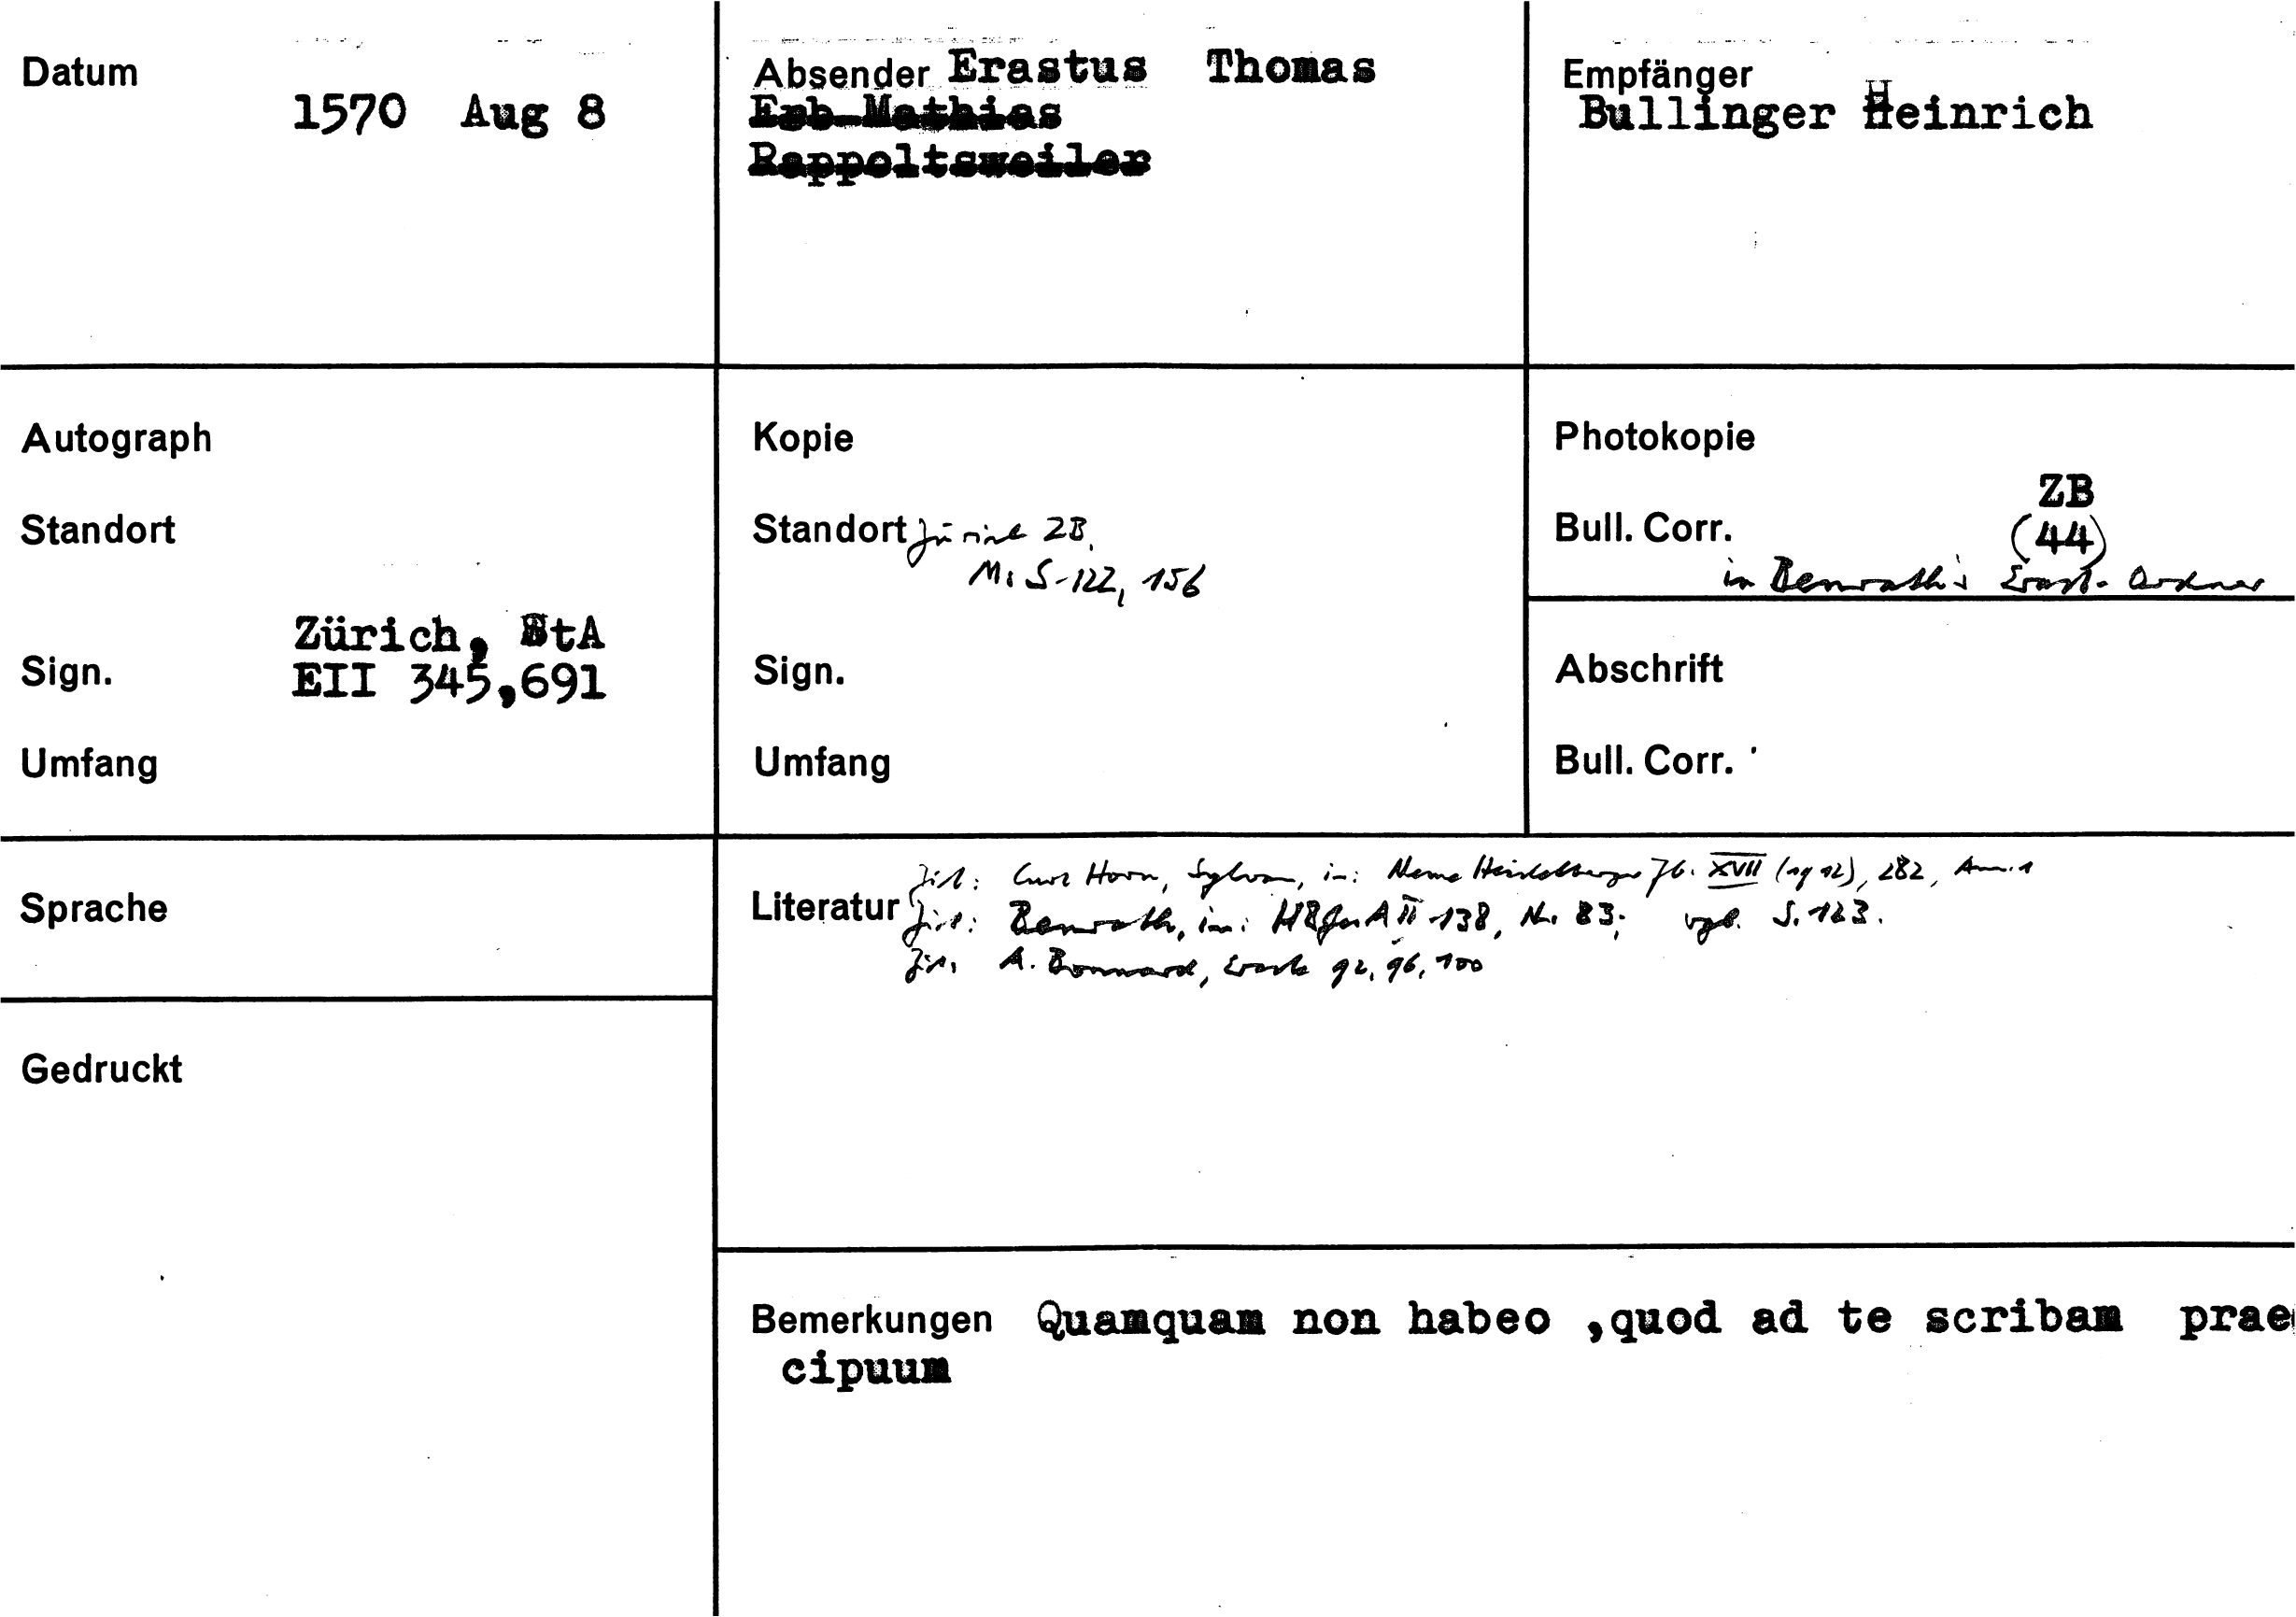 Datum
1570 Aug 8
Absender Erastus Thomas
Erb Mathias
Rappoltsweiler
Empfänger
Bullinger Heinrich
Autograph
Standort
Zürich, StA
Sign. EII 345,691
Umfang
Kopie
Standort Zürich ZB,
Ms S-122, 156
Sign.
Umfang
Photokopie
ZB
Bull. Corr. (44)
in Benrath's Erast-Ordner
Abschrift
Bull. Corr.
Sprache
Gedruckt
Zit: Curt Horn, Sylvan, in: Neue Heidelberger Jb. XVII (1912), 282, Anm. 1
Literatur Zit: Benrath, in: HBGesA II 138, N. 83; vgl. S. 123.
Zit. A. Bonnard, Eraste 92, 96, 100
Bemerkungen Quamquam non habeo ,quod ad te scribam prae
cipuum